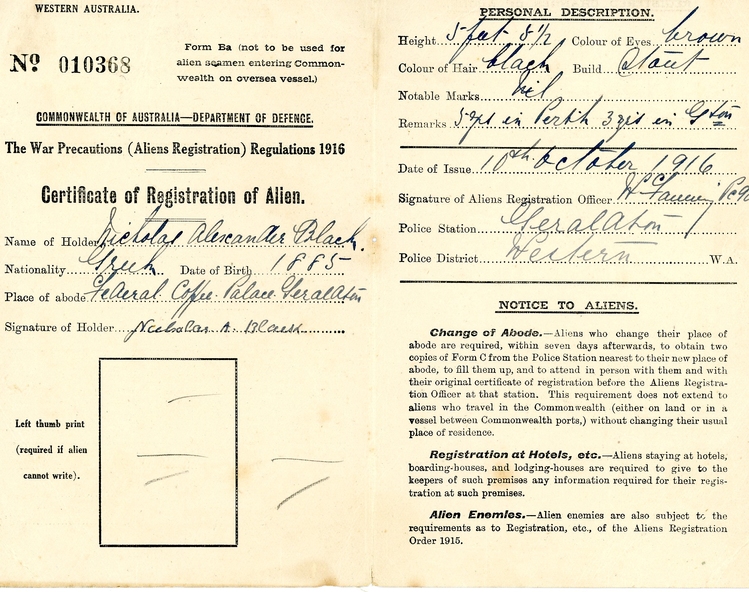 WESTERN AUSTRALIA.
Nº 010368
Form Ba (not to be used for
alien seamen entering Common-
wealth on oversea vessel.)
COMMONWEALTH OF AUSTRALIA—DEPARTMENT OF DEFENCE.
The War Precautions (Aliens Registration) Regulations 1916
Certificate of Registration of Alien.
Name of Holder Nicholas Alexander Black.
Nationality Greek Date of Birth 1885
Place of abode Federal Coffee Palace Geraldton
Signature of Holder Nicholas A. Black
Left thumb print
(required if alien
cannot write).
PERSONAL DESCRIPTION.
Height 5 feet 8 1/2 Colour of Eyes brown
Colour of Hair black Build Stout
Notable Marks Nil
Remarks 5 yrs in Perth 3 yrs in Gton
Date of Issue 10th October 1916
Signature of Aliens Registration Officer
Police Station Geraldton
Police District Western W.A.
NOTICE TO ALIENS.
Change of Abode.—Aliens who change their place of
abode are required, within seven days afterwards, to obtain two
copies of Form C from the Police Station nearest to their new place of
abode, to fill them up, and to attend in person with them and with
their original certificate of registration before the Aliens Registra-
tion Officer at that station. This requirement does not extend to
aliens who travel in the Commonwealth (either on land or in a
vessel between Commonwealth ports,) without changing their usual
place of residence.
Registration at Hotels, etc.—Aliens staying at hotels,
boarding-houses, and lodging-houses are required to give to the
keepers of such premises any information required for their regis-
tration at such premises.
Alien Enemies.—Alien enemies are also subject to the
requirements as to Registration, etc., of the Aliens Registration
Order 1915.